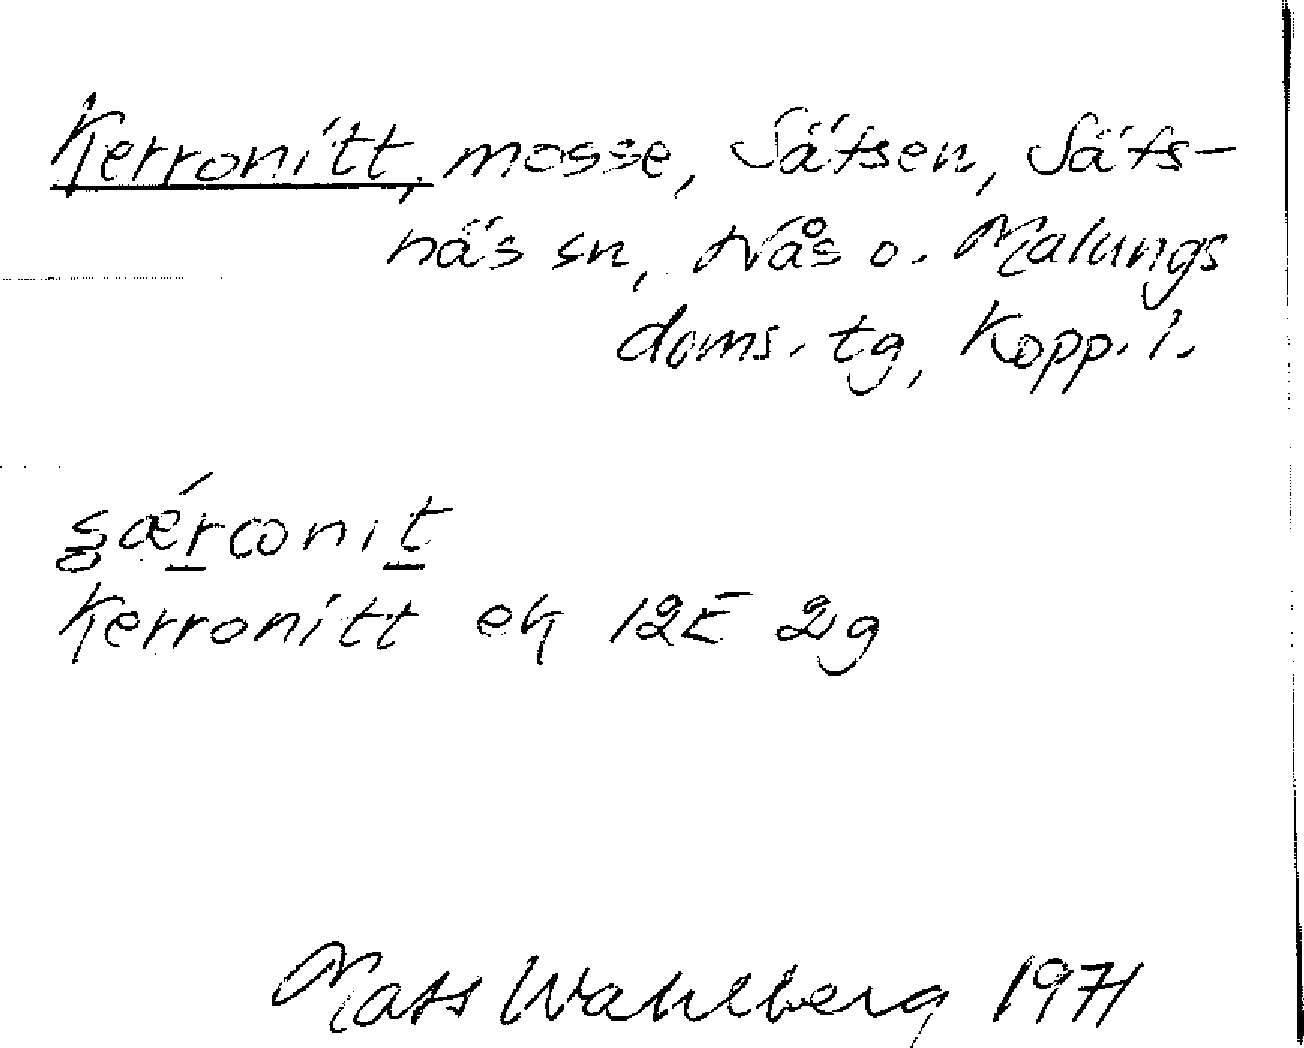 Kerronitt, mosse, Sätsen, Säfs-
näs sn, Nås o. Malungs
doms. tg, Kopp. l.
Kerronitt ek 12E 2g
Mats Wahlberg 1971